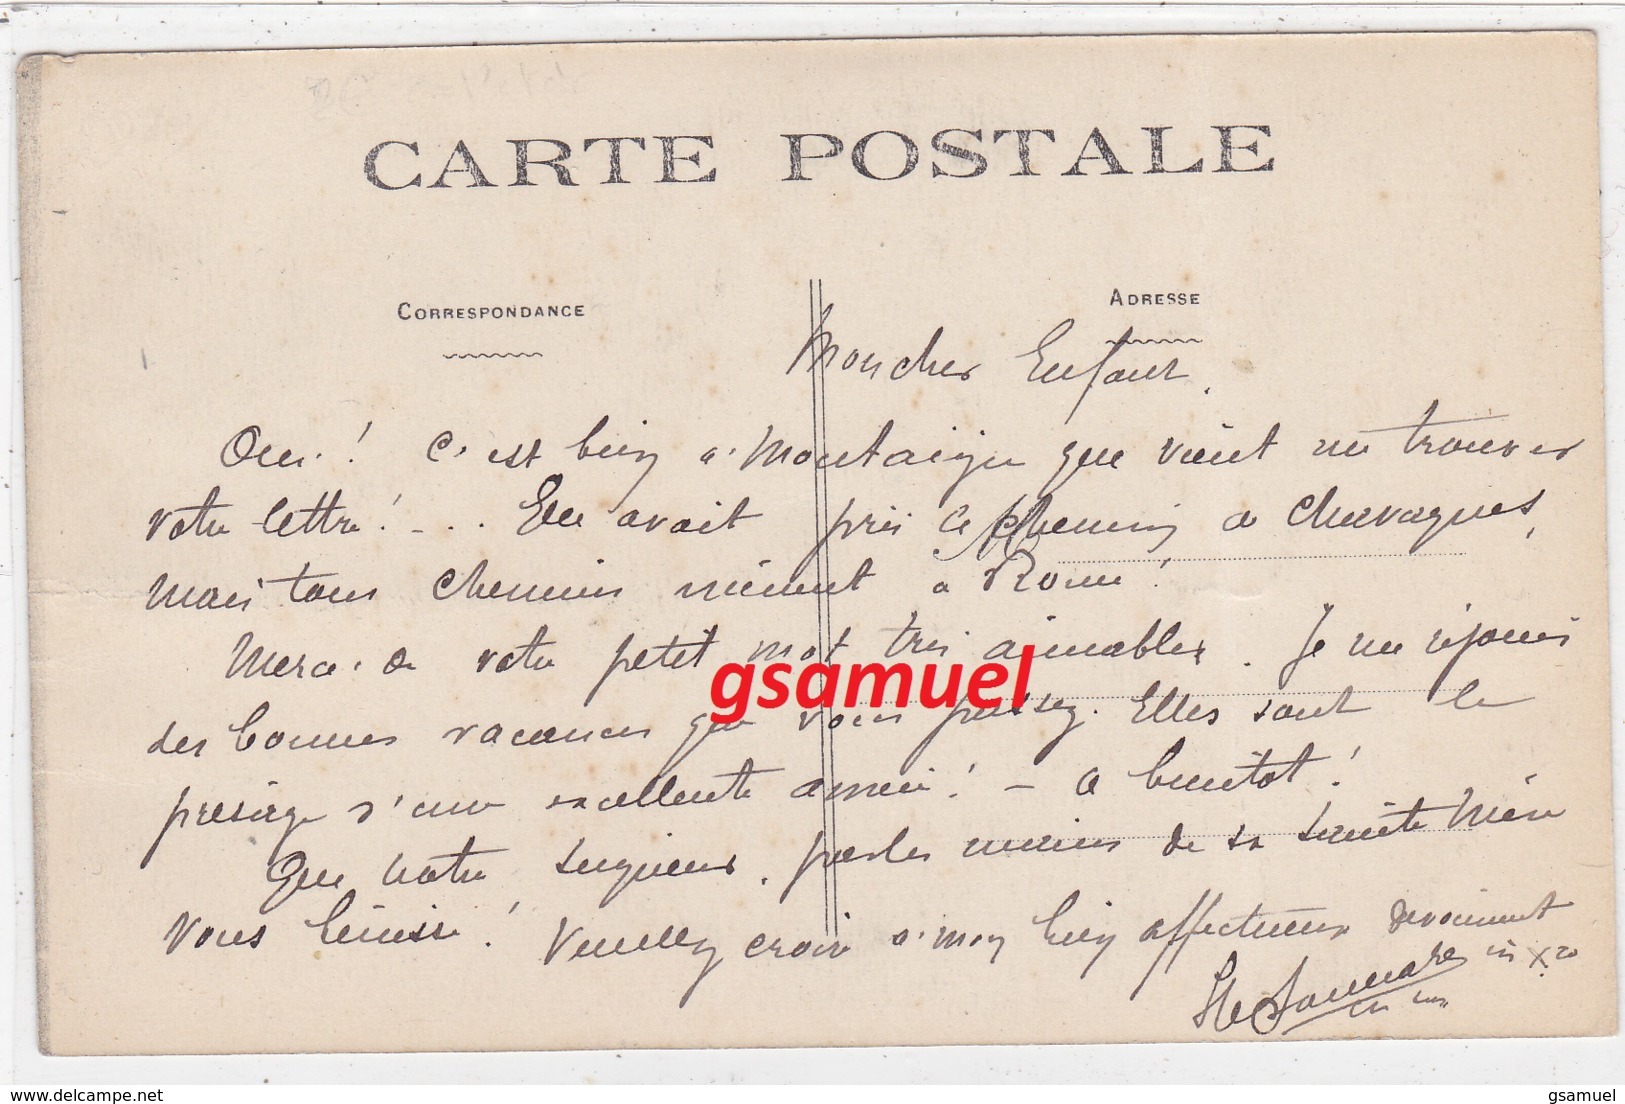 CARTE POSTALE
CORRESPONDANCE
ADRESSE
Mon cher Enfant.
Oui! C'est bien à Montaigu que vient me trouver
votre lettre! - .. Elle avait pris le chemin de Chavagnes,
mais tous chemins mènent à Rome!
Merci de votre petit mot très aimable. Je me réjouis
des bonnes vacances que vous passez. Elles sont le
présage d'une excellente année! - A bientôt!
Que notre Seigneur, par les mains de sa sainte Mère
vous bénisse! Veuillez croire à mon bien affectueux dévouement
in Xto
gsamuel
delcampe.net
gsamuel